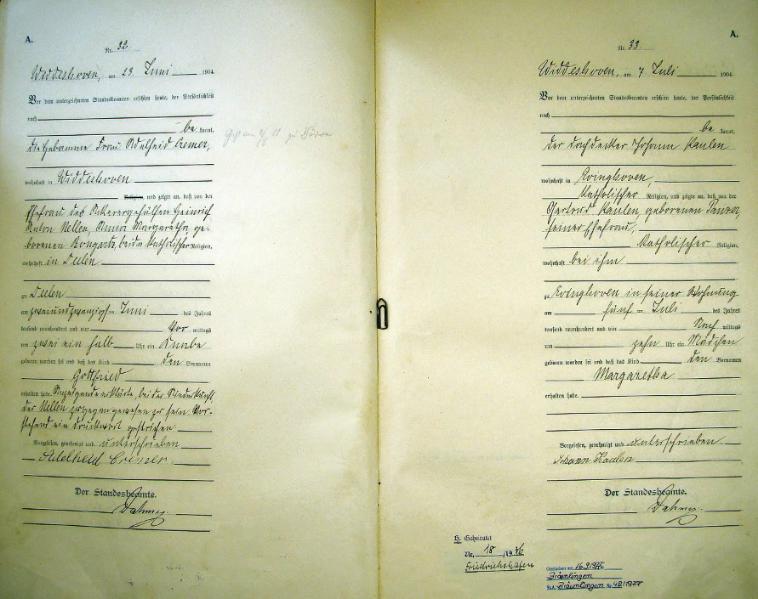 A.
Nr. 32
Widdeshoven, am 23. Juni 1904.
Vor dem unterzeichneten Standesbeamten erschien heute, der Persönlichkeit
nach
be kannt,
die Hebamme Frau Adelheid Cremer,
wohnhaft in Widdeshoven
Religion, und zeigte an, daß von der
Ehefrau des Ackerergehülfen Heinrich
Nellen, Anna Margaretha, ge-
borenen Bongartz, beide katholischer Religion,
wohnhaft in Deelen
zu Deelen
am zweiundzwanzigsten Juni des Jahres
tausend neunhundert und vier Vor mittags
um zwei ein halb Uhr ein Knabe
geboren worden sei und daß das Kind den Vornamen
Gottfried
erhalten habe. Anzeigende erklärte, bei der Niederkunft
der Nellen zugegen gewesen zu sein. Vor-
stehend ein Druckwort gestrichen
Vorgelesen, genehmigt und unterschrieben
Adelheid Cremer
Der Standesbeamte.
A.
Nr. 33
Widdeshoven, am 7. Juli 1904.
Vor dem unterzeichneten Standesbeamten erschien heute, der Persönlichkeit
nach
be kannt,
der Dachdecker Johann Kaulen
wohnhaft in Evinghoven,
katholischer Religion, und zeigte an, daß von der
Gertrud Kaulen, geborenen
seiner Ehefrau,
katholischer Religion,
wohnhaft bei ihm
zu Evinghoven in seiner Wohnung
am fünf- Juli des Jahres
tausend neunhundert und vier Nach mittags
um zehn Uhr ein Mädchen
geboren worden sei und daß das Kind den Vornamen
Margaretha
erhalten habe.
Vorgelesen, genehmigt und unterschrieben
Johann Kaulen
Der Standesbeamte.
Geheiratet
Nr. 18
Friedrichshafen
Gestorben am 16.9.1976
Bräunlingen
St.A. Bräunlingen Nr.